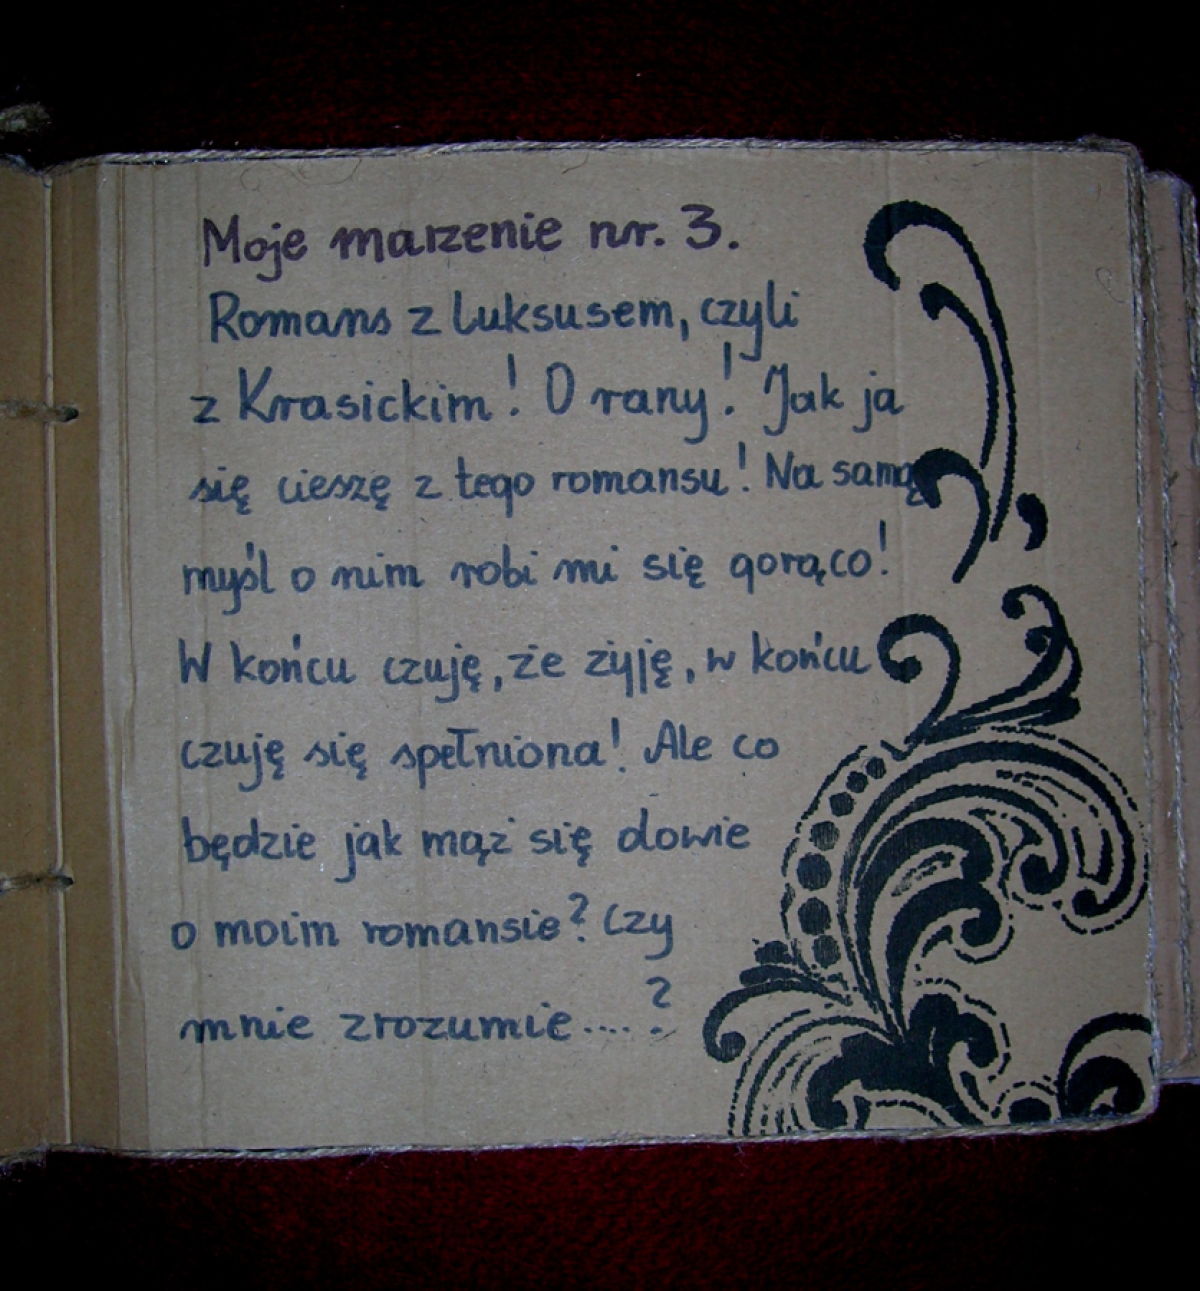 Moje marzenie nr. 3.
Romans z luksusem, czyli
z Krasickim! O rany! Jak ja
się cieszę z tego romansu! Na samą
myśl o nim robi mi się gorąco!
W końcu czuję, że żyję, w końcu
czuję się spełniona! Ale co
będzie jak mąż się dowie
o moim romansie? Czy
mnie zrozumie....?